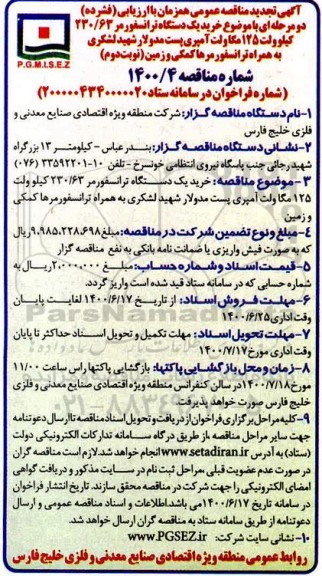 آگهی تجدید مناقصه عمومی همزمان با ارزیابی (فشرده)
دو مرحله ای با موضوع خرید یک دستگاه ترانسفورمر ۲۳۰/۶۳
کیلو ولت ۱۲۵ مگا ولت آمپری پست مدولار شهید لشکری
به همراه ترانسفورمرها کمکی و زمین (نوبت دوم)
P.G.M.I.S.E.Z
شماره مناقصه ۱۴۰۰/۴
(شماره فراخوان در سامانه ستاد ۲۰۰۰۰۰۴۳۴۴۰۰۰۰۲۰)
۱-نام دستگاه مناقصه گزار: شرکت منطقه ویژه اقتصادی صنایع معدنی و
فلزی خلیج فارس
۲-نشانی دستگاه مناقصه گزار: بندرعباس - کیلومتر ۱۳ بزرگراه
شهید رجائی جنب پاسگاه نیروی انتظامی خونسرخ - تلفن ۱۰-۳۳۵۹۲۲۰۱ (۰۷۶)
۳-موضوع مناقصه: خرید یک دستگاه ترانسفورمر ۲۳۰/۶۳ کیلو ولت
۱۲۵ مگا ولت آمپری پست مدولار شهید لشکری به همراه ترانسفورمرها کمکی
و زمین
۴-مبلغ و نوع تضمین شرکت در مناقصه: مبلغ ۹،۹۸۵،۲۲۸،۶۹۸ ریال
که به صورت فیش واریزی یا ضمانت نامه بانکی به نفع مناقصه گزار
۵-قیمت اسناد و شماره حساب: مبلغ ۲،۰۰۰،۰۰۰ ریال به
شماره حسابی که در سامانه ستاد قید شده است واریز گردد.
۶-مهلت فروش اسناد: از تاریخ ۱۴۰۰/۶/۱۷ لغایت پایان
وقت اداری ۱۴۰۰/۶/۲۵
۷-مهلت تحویل اسناد: مهلت تکمیل و تحویل اسناد حداکثر تا پایان
وقت اداری مورخ ۱۴۰۰/۷/۱۷
۸-زمان و محل بازگشایی پاکتها: بازگشایی پاکتها راس ساعت ۱۱/۰۰
مورخ ۱۴۰۰/۷/۱۸ در سالن کنفرانس منطقه ویژه اقتصادی صنایع معدنی و فلزی
خلیج فارس صورت خواهد پذیرفت.
۹-کلیه مراحل برگزاری فراخوان از دریافت و تحویل اسناد مناقصه تا ارسال دعوتنامه
جهت سایر مراحل مناقصه، از طریق درگاه سامانه تدارکات الکترونیکی دولت
(ستاد) به آدرس www.setadiran.ir انجام خواهد شد. لازم است مناقصه گران
در صورت عدم عضویت قبلی، مراحل ثبت نام در سایت مذکور و دریافت گواهی
امضای الکترونیکی را جهت شرکت در مناقصه محقق سازند. تاریخ انتشار فراخوان
در سامانه تاریخ ۱۴۰۰/۶/۱۷ می باشد. اطلاعات و اسناد مناقصه عمومی و ارسال
دعوتنامه از طریق سامانه ستاد به مناقصه گران ارسال خواهد شد.
۱۰-نشانی سایت شرکت: www.PGSEZ.ir
روابط عمومی منطقه ویژه اقتصادی صنایع معدنی و فلزی خلیج فارس